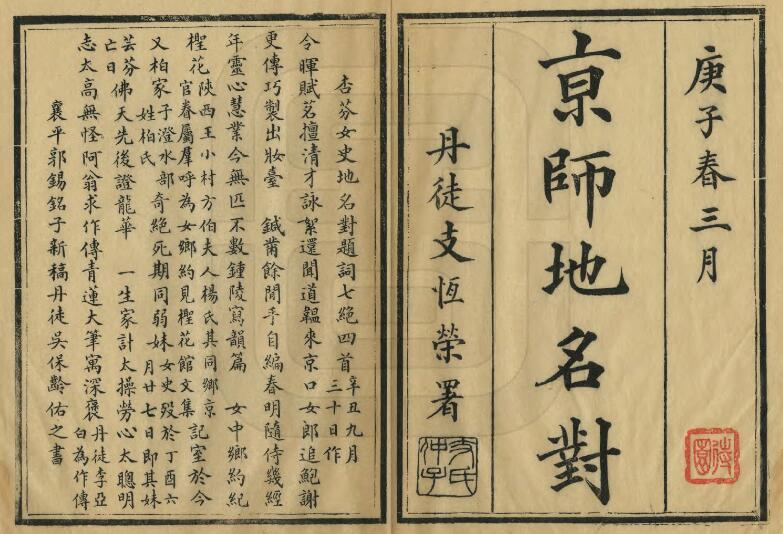 庚子春三月
京師地名對
丹徒支恆榮署
支氏仲子
杏芬女史地名對題詞七絕四首辛丑九月三十日作
令暉賦茗擅清才詠絮還聞道韞來京口女郎追鮑謝
更傳巧製出妝臺　鍼黹餘閒手自編春明隨侍幾經
年靈心慧業今無匹不數鍾陵寫韻篇　女中鄉約紀
樫花陝西王小村方伯夫人楊氏其同鄉京官眷屬羣呼為女鄉約見樫花館文集記室於今
又柏家子澄水部奇絕死期同弱妹女史歿於丁酉六月廿七日即其妹姓柏氏
亡日芸芬佛天先後證龍華　一生家計太操勞心太聰明
志太高無怪阿翁求作傳青蓮大筆寓深褒丹徒李亞白為作傳
襄平郭錫銘子新稿丹徒吳保齡佑之書